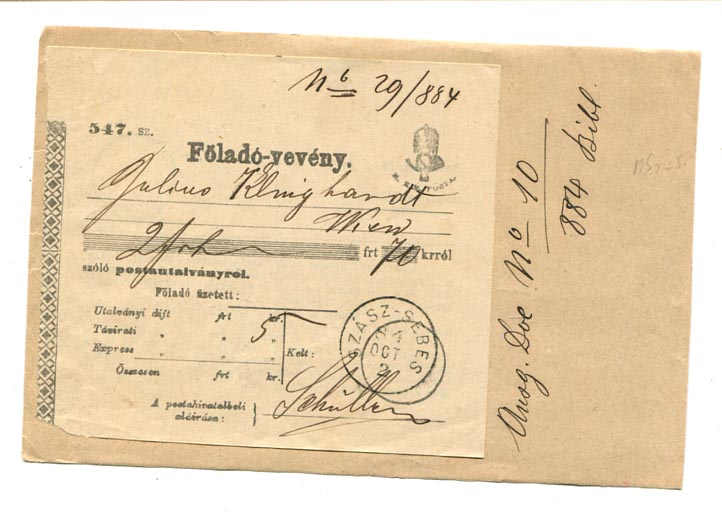 Nº 29/884
547. sz.
Föladó-vevény.
M. KIR. POSTA.
Julius Klinghardt
Wien
2 frt 70 krról
szóló postautalványról.
Föladó fizetett:
Utalványi díjt frt kr.
Távirati " " 5 "
Express " "
Összesen frt kr.
Kelt:
SZÁSZ-SEBES
84
OCT
2
A postahivatalbeli
aláírása:
Schuller
Ausg. Doc Nº 10
884 Bibl.